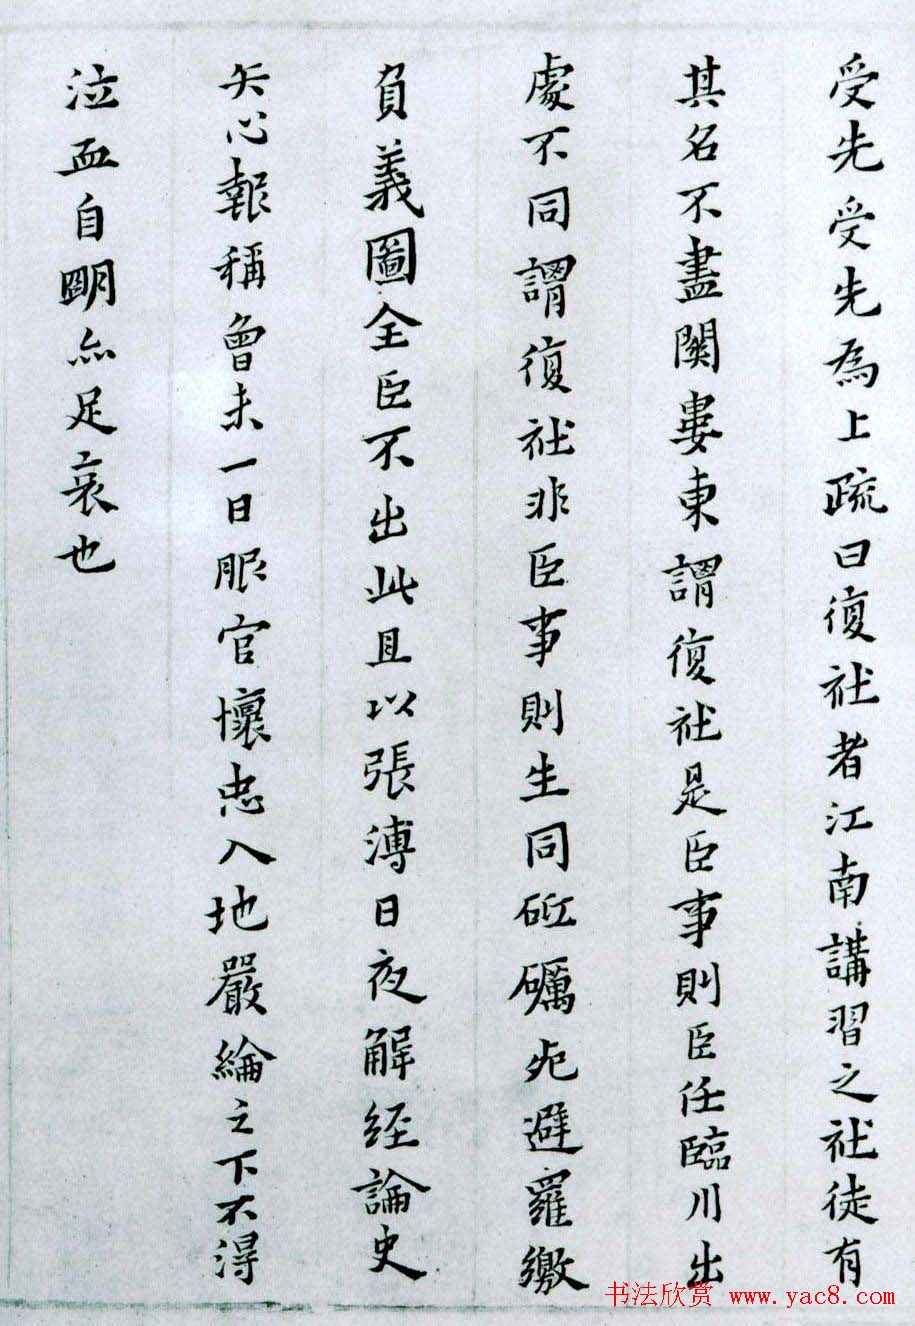 受先受先為上疏曰復社者江南講習之社徒有
其名不盡關婁東謂復社是臣事則臣任臨川出
處不同謂復社非臣事則生同砥礪死避羅繳
負義圖全臣不出此且以張溥日夜解經論史
矢心報稱曾未一日服官懷忠入地嚴綸之下不得
泣血自朙亦足哀也
书法欣赏 www.yac8.com